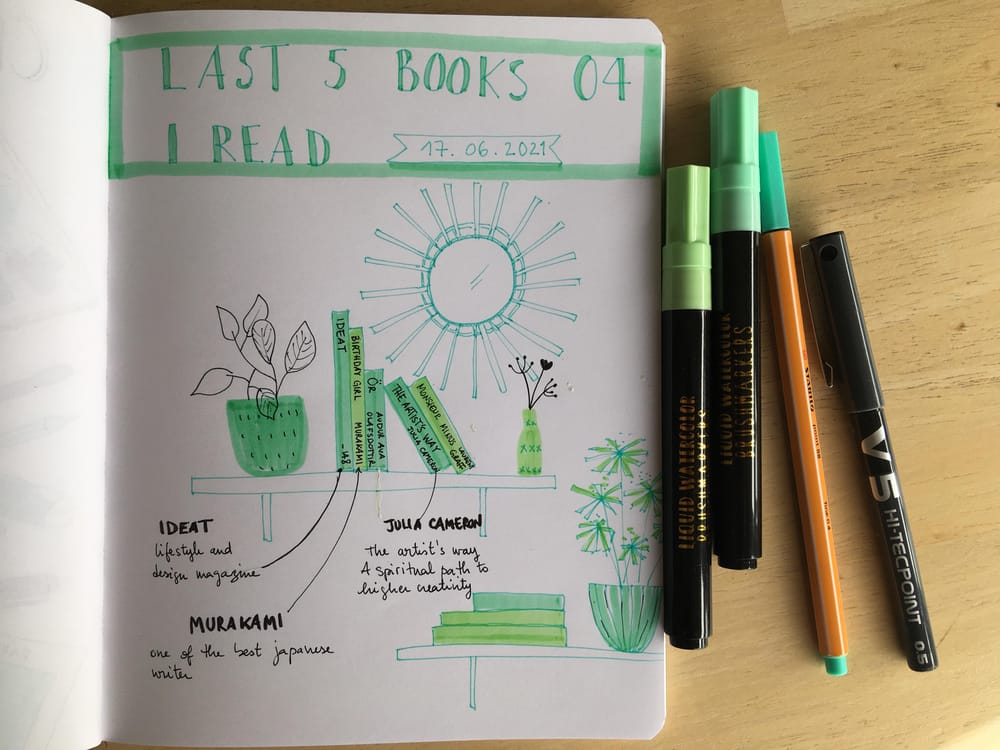 LAST 5 BOOKS 04
I READ
17.06.2021
IDEAT
148
BIRTHDAY GIRL MURAKAMI
Ör AUDUR AVA
OLAFSDOTTIR
THE ARTIST'S WAY
JULIA CAMERON
MONSIEUR MINUS
IDEAT
lifestyle and
design magazine
JULIA CAMERON
The artist's way
A spiritual path to
higher creativity
MURAKAMI
one of the best japanese
writer
LIQUID WATERCOLOR
BRUSHMARKERS
LIQUID WATERCOLOR
BRUSHMARKERS
STABILO point 88
fine 0.4
V5 HI-TECPOINT 0.5